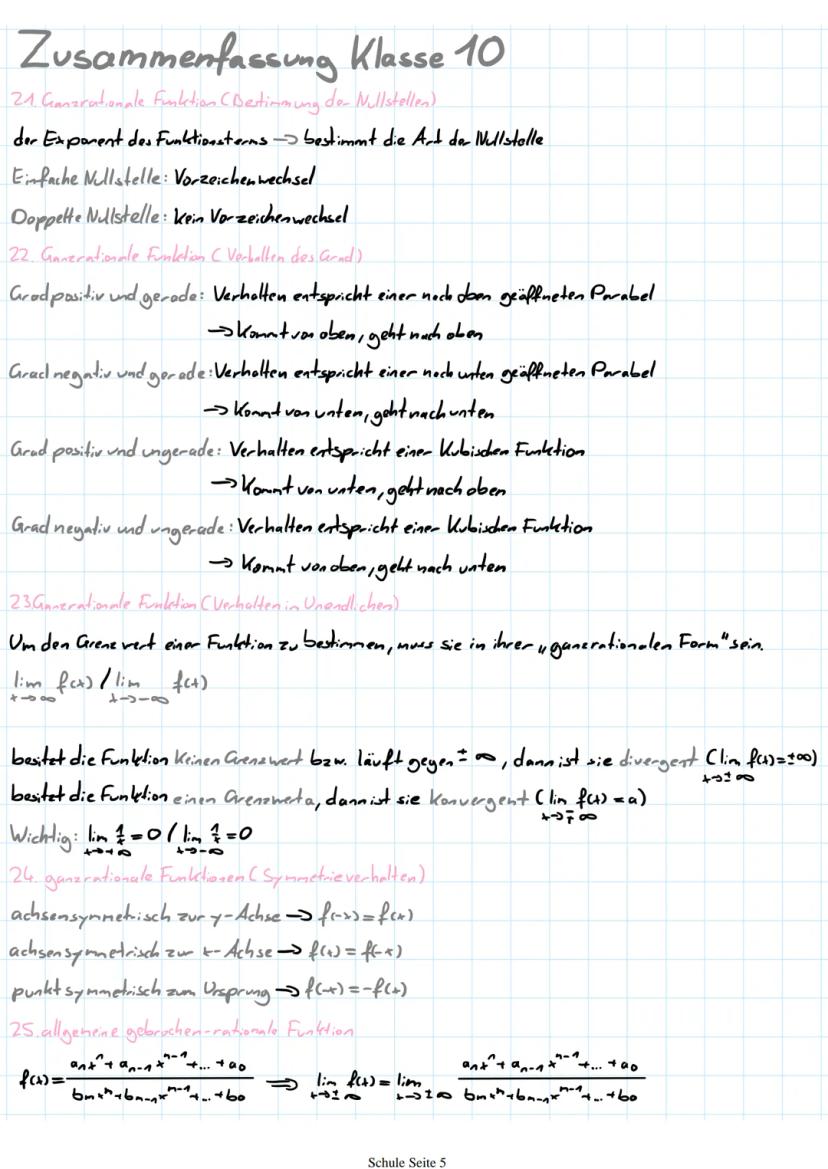 Zusammenfassung Klasse 10
21. Ganzrationale Funktion (Bestimmung der Nullstellen)
der Exponent des Funktionsterms → bestimmt die Art der Nullstelle
Einfache Nullstelle: Vorzeichenwechsel
Doppelte Nullstelle: kein Vorzeichenwechsel
22. Ganzrationale Funktion (Verhalten des Grad)
Grad positiv und gerade: Verhalten entspricht einer nach oben geöffneten Parabel
→ Kommt von oben, geht nach oben
Grad negativ und gerade: Verhalten entspricht einer nach unten geöffneten Parabel
→ Kommt von unten, geht nach unten
Grad positiv und ungerade: Verhalten entspricht einer Kubischen Funktion
→ Kommt von unten, geht nach oben
Grad negativ und ungerade: Verhalten entspricht einer Kubischen Funktion
→ Kommt von oben, geht nach unten
23. Ganzrationale Funktion (Verhalten in Unendlichen)
Um den Grenzwert einer Funktion zu bestimmen, muss sie in ihrer „ganzrationalen Form" sein.
lim x→∞ f(x) / lim x→-∞ f(x)
besitzt die Funktion keinen Grenzwert bzw. läuft gegen ± ∞, dann ist sie divergent (lim x→±∞ f(x)=±∞)
besitzt die Funktion einen Grenzwert a, dann ist sie konvergent (lim x→∓∞ f(x)=a)
Wichtig: lim x→+∞ 1/x = 0 / lim x→-∞ 1/x = 0
24. ganzrationale Funktionen (Symmetrieverhalten)
achsensymmetrisch zur y-Achse → f(-x)=f(x)
achsensymmetrisch zur x-Achse → f(x)=f(-x)
punktsymmetrisch zum Ursprung → f(-x)=-f(x)
25. allgemeine gebrochen-rationale Funktion
f(x)= (aₙxⁿ+aₙ₋₁xⁿ⁻¹+...+a₀)/(bₘxⁿ+bₘ₋₁xᵐ⁻¹+...+b₀) ⇒ lim x→±∞ f(x)= lim x→±∞ (aₙxⁿ+aₙ₋₁xⁿ⁻¹+...+a₀)/(bₘxⁿ+bₘ₋₁xᵐ⁻¹+...+b₀)
Schule Seite 5